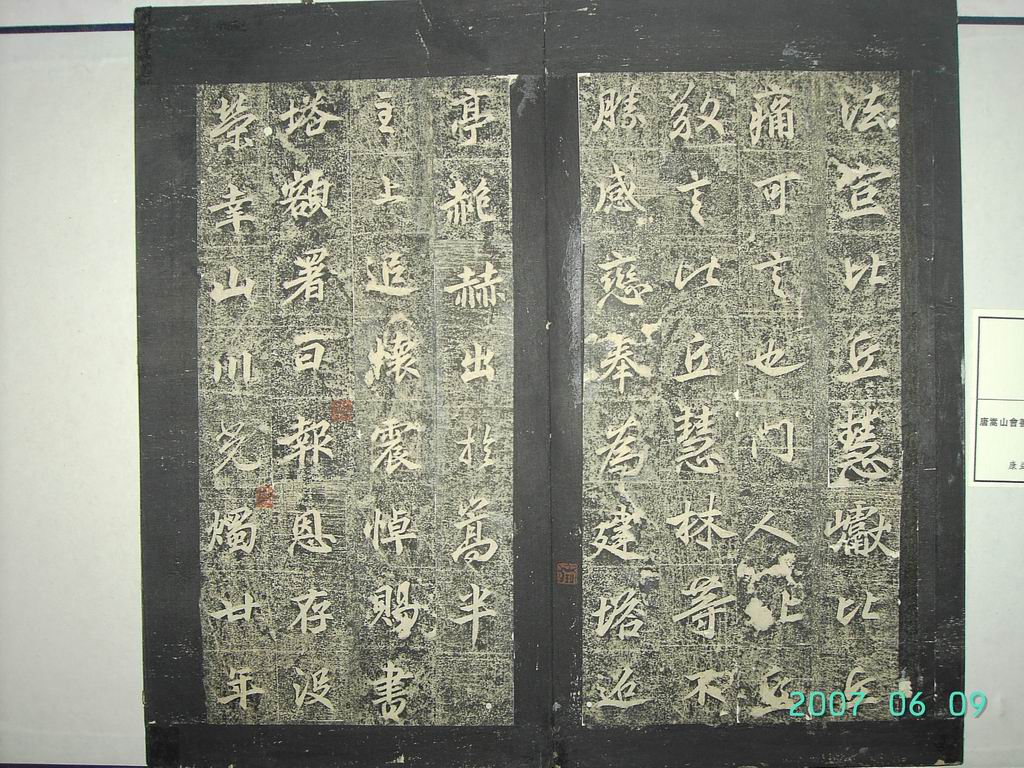 法宣比丘慧巘比丘
痛可言也門人比丘
敬言比丘慧林等不
勝感戀奉為建塔迢
亭赩赫出於嵩半
主上追懷震悼賜書
塔額署曰報恩存沒
榮幸山川光燭廿年
唐嵩山會善
康
2007 06 09